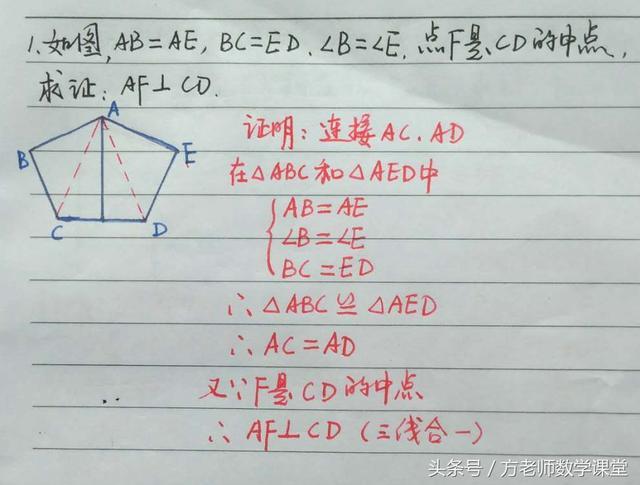 1.如图,AB=AE,BC=ED.∠B=∠E.点F是CD的中点,
求证:AF⊥CD.
A
B
E
C
D
证明:连接AC.AD
在△ABC和△AED中
AB=AE
∠B=∠E
BC=ED
∴△ABC≌△AED
∴AC=AD
又∵F是CD的中点
∴AF⊥CD(三线合一)
头条号/方老师数学课堂